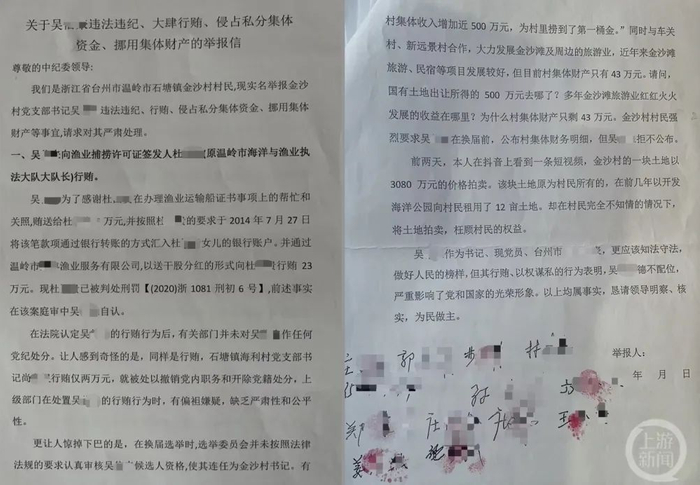 关于吴 违法违纪、大肆行贿、侵占私分集体
资金、挪用集体财产的举报信
尊敬的中纪委领导：
我们是浙江省台州市温岭市石塘镇金沙村村民，现实名举报金沙
村党支部书记吴 违法违纪、行贿、侵占私分集体资金、挪用集体
财产等事宜,请求对其严肃处理。
一、吴 向渔业捕捞许可证签发人杜 (原温岭市海洋与渔业执
法大队大队长)行贿。
吴 为了感谢杜 在办理渔业运输船证书事项上的帮忙和
关照,贿送给杜 万元,并按照杜 的要求于 2014 年 7 月 27 日
将该笔款项通过银行转账的方式汇入杜 女儿的银行账户。并通过
温岭市 渔业服务有限公司,以送干股分红的形式向杜 行贿 23
万元。现杜 已被判处刑罚【(2020)浙 1081 刑初 6 号】,前述事实
在该案庭审中吴 自认。
在法院认定吴 的行贿行为后，有关部门并未对吴 作任何
党纪处分。让人感到奇怪的是，同样是行贿，石塘镇海利村党支部书
记尚 行贿仅两万元，就被处以撤销党内职务和开除党籍处分，上
级部门在处置吴 的行贿行为时，有偏袒嫌疑，缺乏严肃性和公平
性。
更让人惊掉下巴的是，在换届选举时,选举委员会并未按照法律
法规的要求认真审核吴 候选人资格,使其连任为金沙村书记。有
村集体收入增加近 500 万元，为村里捞到了第一桶金。”同时与车关
村、新远景村合作，大力发展金沙滩及周边的旅游业，近年来金沙滩
旅游、民宿等项目发展较好，但目前村集体财产只有 43 万元。请问，
国有土地出让所得的 500 万元去哪了？多年金沙滩旅游业红红火火
发展的收益在哪里？为什么村集体财产只剩 43 万元。金沙村村民强
烈要求吴 在换届前，公布村集体财务明细，但吴 拒不公布。
前两天，本人在抖音上看到一条短视频，金沙村的一块土地以
3080 万元的价格拍卖。该块土地原为村民所有的，在前几年以开发
海洋公园向村民租用了 12 亩土地。却在村民完全不知情的情况下，
将土地拍卖，枉顾村民的权益。
吴 作为书记、现党员、台州市 ，更应该知法守法，
做好人民的榜样，但其行贿、以权谋私的行为表明，吴 德不配位，
严重影响了党和国家的光荣形象。以上均属事实，恳请领导明察、核
实，为民做主。
举报人：
年 月 日
庄 郭 林
郑 庄 王
姜
上游新闻